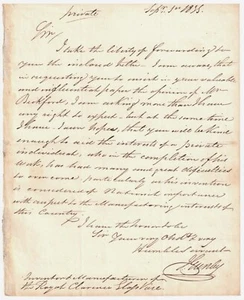 Private
Sept. 1st 1835.
Sir,
I take the liberty of forwarding to
you the inclosed letter. I am aware, that
in requesting you to insert in your valuable
and influential paper the opinion of Mr
Beckford, I am asking more than I have
any right to expect, but at the same time
I have hopes, that you will be kind
enough to aid the interests of a private
individual, who in the completion of his
Work, has had many and great difficulties
to overcome particularly as his invention
is considered of National importance
with respect to the Manufacturing interests of
this Country.
I have the honor to be
Sir Your very Obdt &
Humble Servant
J. Gunby
Inventor & Manufacturer of
the Royal Clarence Vase.